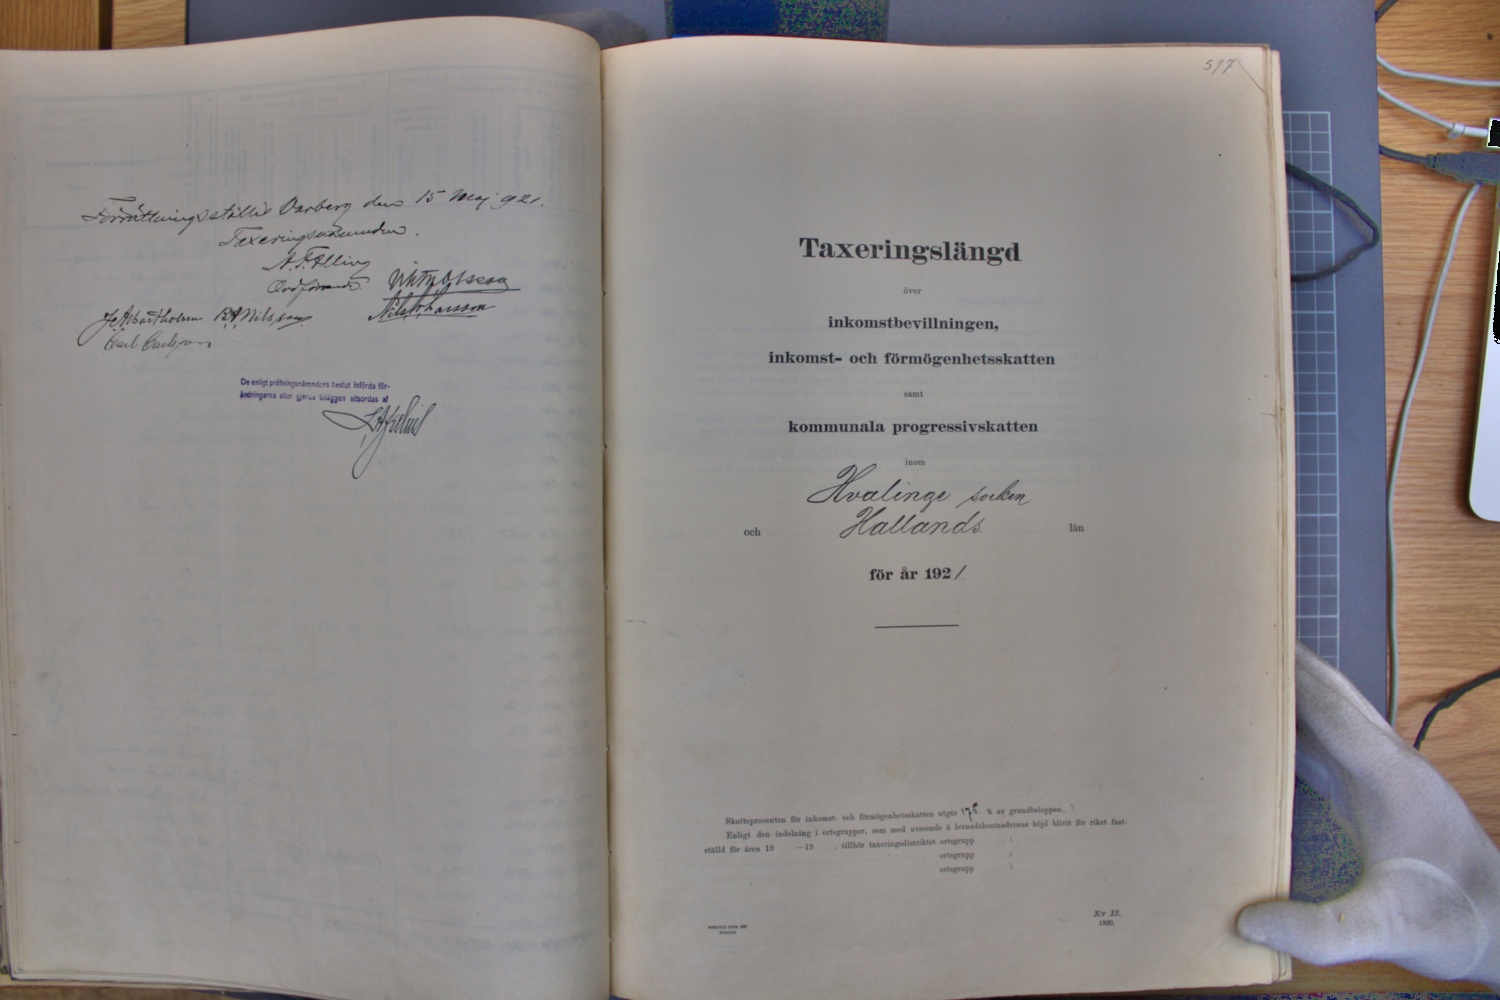 Förrättningsstället Varberg den 15 Maj 1921.
Taxeringsnämnden.
Ordförande.
Carl Carlsson
De enligt prövningsnämndens beslut införda för-
ändringarna eller gjorda tilläggen vitsordas af
517
Taxeringslängd
över
inkomstbevillningen,
inkomst- och förmögenhetsskatten
samt
kommunala progressivskatten
inom
Hvalinge socken
och Hallands län
för år 1921
Skatteprocenten för inkomst- och förmögenhetsskatten utgör 175 % av grundbeloppen.
Enligt den indelning i ortsgrupper, som med avseende å levnadskostnadernas höjd blivit för riket fast-
ställd för åren 19 —19 , tillhör taxeringsdistriktet ortsgrupp
ortsgrupp
ortsgrupp
N:r 13.
1920.